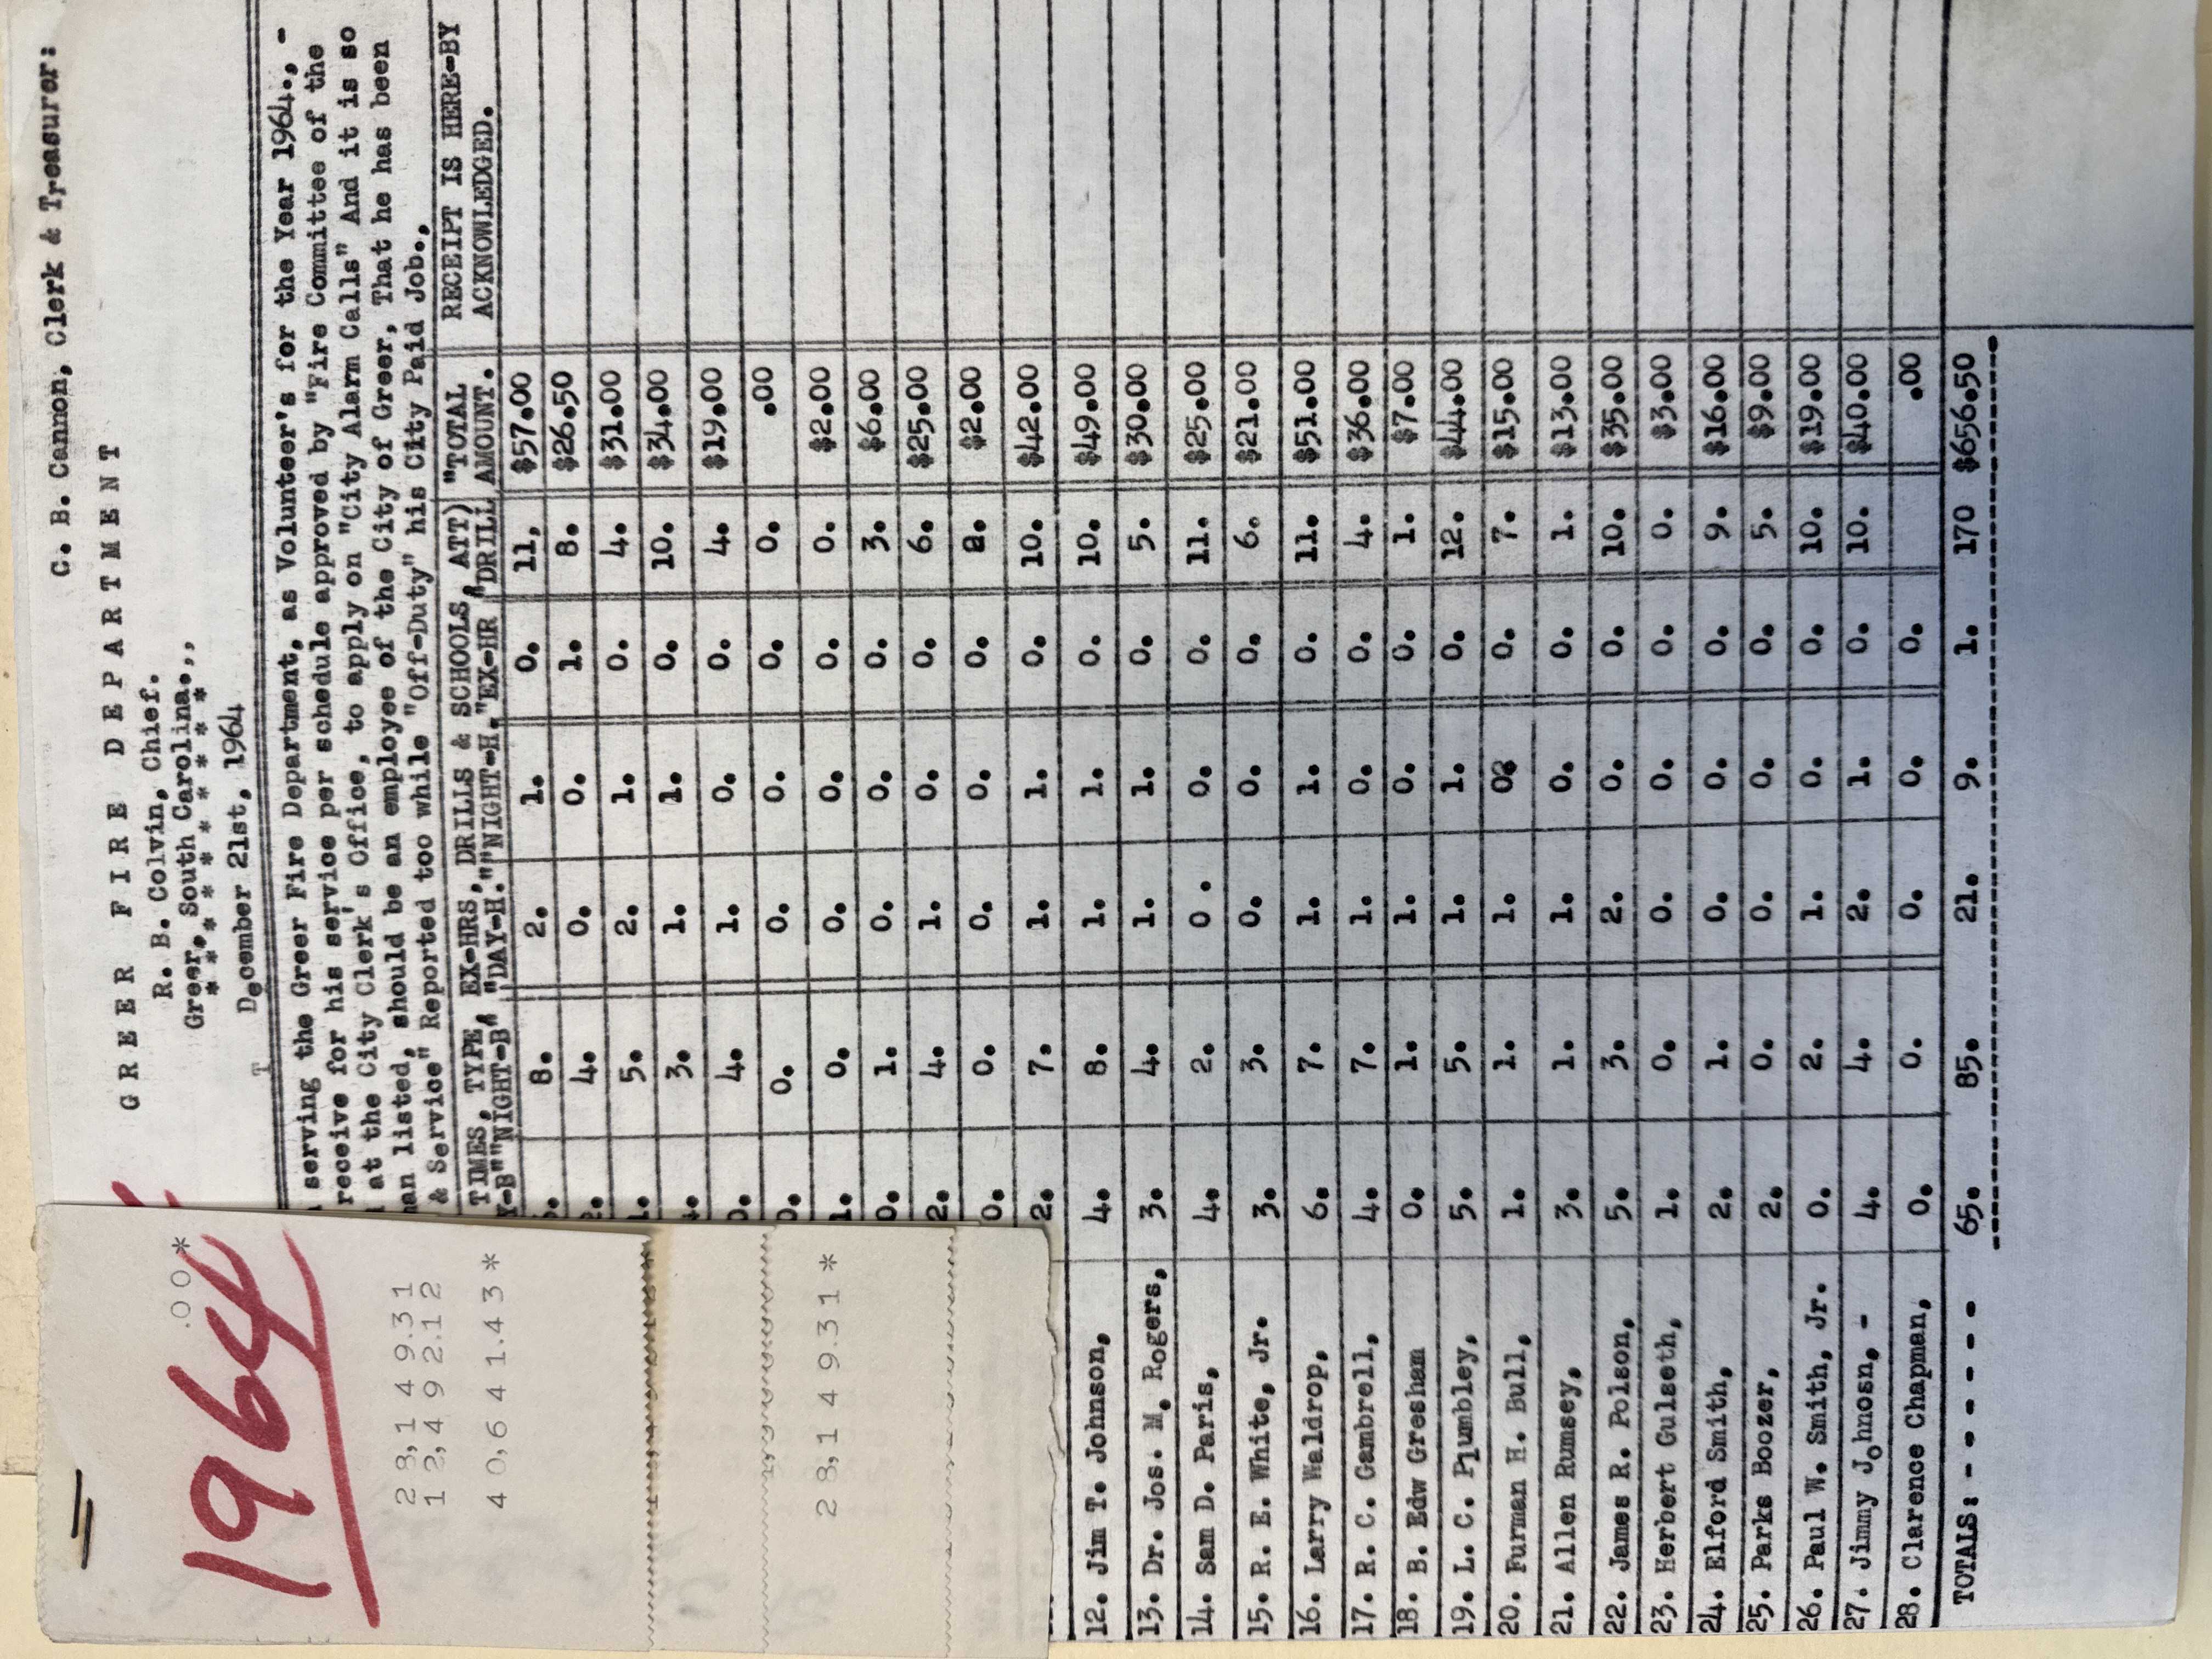 C. B. Cannon, Clerk & Treasurer:
G R E E R F I R E D E P A R T M E N T
R. B. Colvin, Chief.
Greer, South Carolina.,,
* * * * * * * * * *
December 21st, 1964
T
serving the Greer Fire Department, as Volunteer's for the Year 1964., -
receive for his service per schedule approved by "Fire Committee of the
at the City Clerk's Office, to apply on "City Alarm Calls" And it is so
man listed, should be an employee of the City of Greer, That he has been
& Service" Reported too while "Off-Duty" his City Paid Job.,
TIMES, TYPE, EX-HRS, DRILLS & SCHOOLS, ATT) "TOTAL RECEIPT IS HERE-BY
Y-B""NIGHT-B" "DAY-H.""NIGHT-H."EX-HR "DRILL AMOUNT. ACKNOWLEDGED.
8. 2. 1. 0. 11, $57.00
2. 4. 0. 0. 1. 8. $26.50
1. 5. 2. 1. 0. 4. $31.00
4. 3. 1. 1. 0. 10. $34.00
0. 4. 1. 0. 0. 4. $19.00
0. 0. 0. 0. 0. 0. .00
1. 0. 0. 0. 0. 0. $2.00
0. 1. 0. 0. 0. 3. $6.00
2. 4. 1. 0. 0. 6. $25.00
0. 0. 0. 0. 0. 2. $2.00
2. 7. 1. 1. 0. 10. $42.00
12. Jim T. Johnson, 4. 8. 1. 1. 0. 10. $49.00
13. Dr. Jos. M. Rogers, 3. 4. 1. 1. 0. 5. $30.00
14. Sam D. Paris, 4. 2. 0 . 0. 0. 11. $25.00
15. R. E. White, Jr. 3. 3. 0. 0. 0. 6. $21.00
16. Larry Waldrop, 6. 7. 1. 1. 0. 11. $51.00
17. R. C. Gambrell, 4. 7. 1. 0. 0. 4. $36.00
18. B. Edw Gresham 0. 1. 1. 0. 0. 1. $7.00
19. L. C. Plumbley, 5. 5. 1. 1. 0. 12. $44.00
20. Furman H. Bull, 1. 1. 1. 0. 0. 7. $15.00
21. Allen Rumsey, 3. 1. 1. 0. 0. 1. $13.00
22. James R. Polson, 5. 3. 2. 0. 0. 10. $35.00
23. Herbert Gulseth, 1. 0. 0. 0. 0. 0. $3.00
24. Elford Smith, 2. 1. 0. 0. 0. 9. $16.00
25. Parks Boozer, 2. 0. 0. 0. 0. 5. $9.00
26. Paul W. Smith, Jr. 0. 2. 1. 0. 0. 10. $19.00
27. Jimmy Johnosn, - 4. 4. 2. 1. 0. 10. $40.00
28. Clarence Chapman, 0. 0. 0. 0. 0. .00
TOTALS: - - - - - - - 65. 85. 21. 9. 1. 170 $656.50
.00*
1964
28,149.31
12,492.12
40,641.43*
28,149.31*